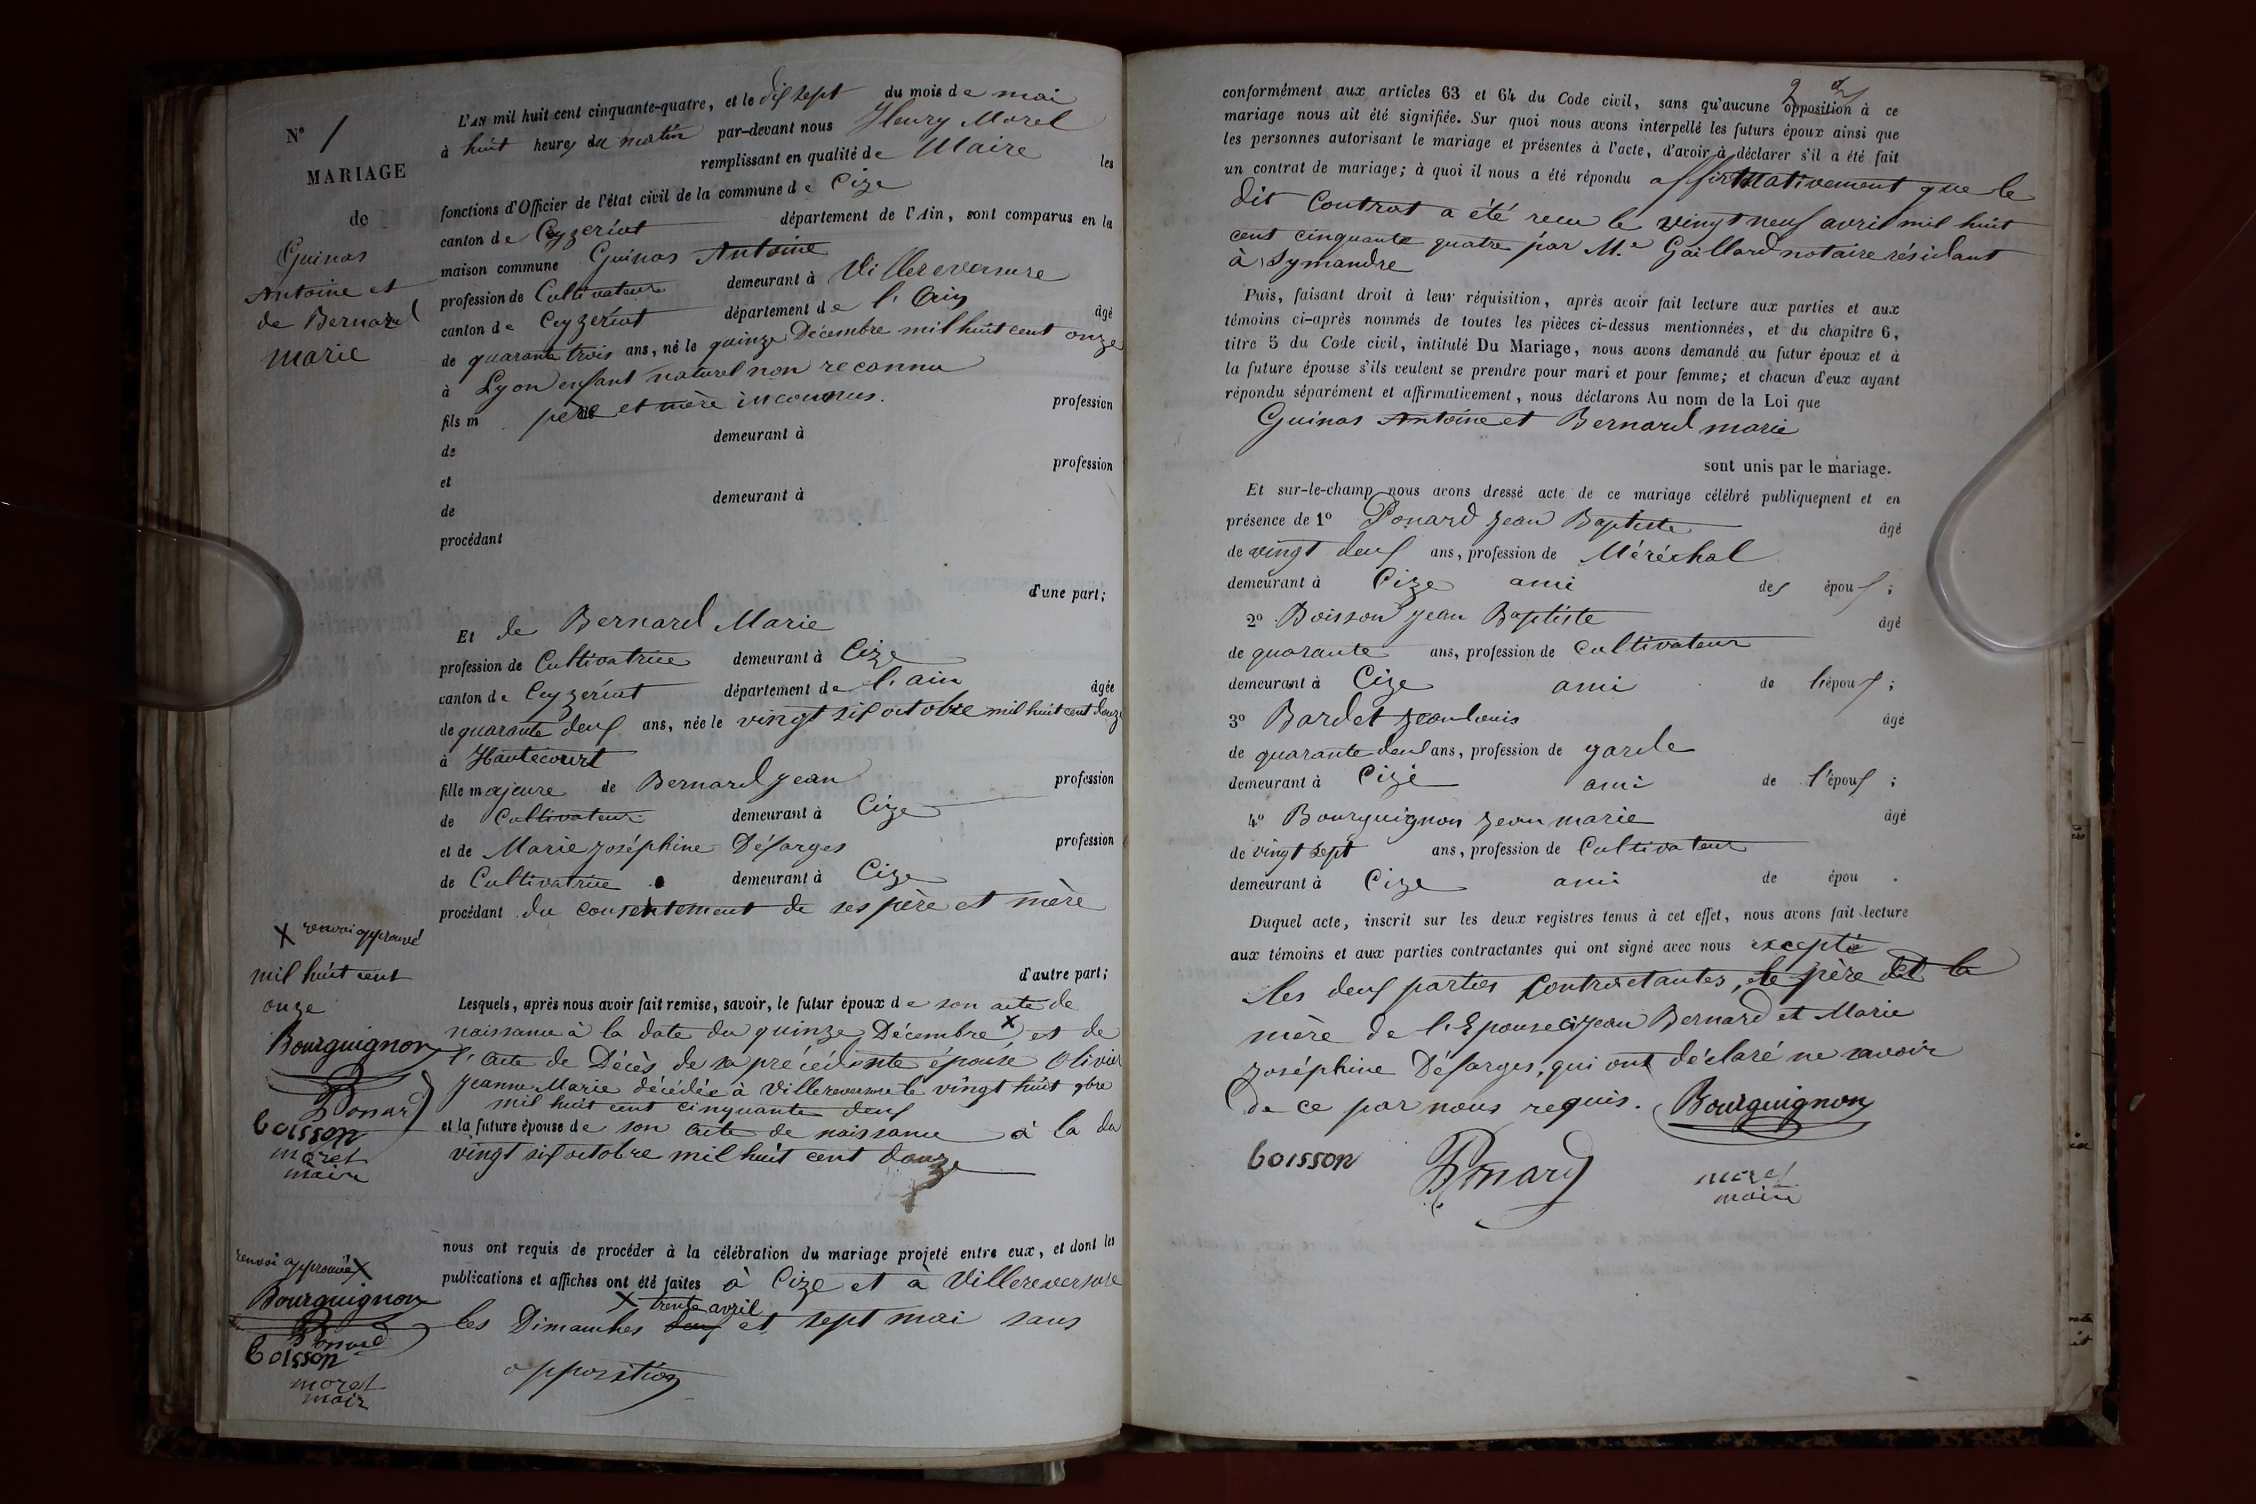 N° 1
MARIAGE
de
Guinas
Antoine et
de Bernard
marie
L'AN mil huit cent cinquante-quatre, et le dix sept du mois de mai
à huit heures du matin par-devant nous Fleury Morel
remplissant en qualité de Maire les
fonctions d'Officier de l'état civil de la commune de Cize
canton de Ceyzeriat département de l'Ain, sont comparus en la
maison commune Guinas Antoine
profession de Cultivateur demeurant à Villereversure
canton de Ceyzeriat département de l'Ain âgé
de quarante trois ans, né le quinze Décembre mil huit cent onze
à Lyon enfant naturel non reconnu
fils m père et mère inconnus. profession
de demeurant à
et profession
de demeurant à
procédant
d'une part;
Et de Bernard Marie
profession de Cultivatrice demeurant à Cize
canton de Ceyzeriat département de l'ain âgée
de quarante deux ans, née le vingt six octobre mil huit cent douze
à Hautecourt
fille majeure de Bernard Jean profession
de Cultivateur demeurant à Cize
et de Marie Joséphine Désarges profession
de Cultivatrice demeurant à Cize
procédant du consentement de ses père et mère
d'autre part;
Lesquels, après nous avoir fait remise, savoir, le futur époux de son acte de
naissance à la date du quinze Décembre X et de
l'acte de Décès de sa précédente épouse Olivier
Jeanne Marie décédée à Villereversure le vingt huit 9bre
mil huit cent cinquante deux
et la future épouse de son acte de naissance à la da
vingt six octobre mil huit cent douze
nous ont requis de procéder à la célébration du mariage projeté entre eux, et dont les
publications et affiches ont été faites à Cize et à Villereversure
X trente avril
les Dimanches deux et sept mai sans
opposition
X renvoi approuvé
mil huit cent
onze
Bourguignon
Ponard
boisson
morel
maire
renvoi approuvé X
Bourguignon
Ponard
boisson
morel
mair
2
conformément aux articles 63 et 64 du Code civil, sans qu'aucune opposition à ce
mariage nous ait été signifiée. Sur quoi nous avons interpellé les futurs époux ainsi que
les personnes autorisant le mariage et présentes à l'acte, d'avoir à déclarer s'il a été fait
un contrat de mariage; à quoi il nous a été répondu affirmativement que le
dit Contrat a été recu le vingt neuf avril mil huit
cent cinquante quatre par M.e Gaillard notaire résidant
à Symandre
Puis, faisant droit à leur réquisition, après avoir fait lecture aux parties et aux
témoins ci-après nommés de toutes les pièces ci-dessus mentionnées, et du chapitre 6,
titre 5 du Code civil, intitulé Du Mariage, nous avons demandé au futur époux et à
la future épouse s'ils veulent se prendre pour mari et pour femme; et chacun d'eux ayant
répondu séparément et affirmativement, nous déclarons Au nom de la Loi que
Guinas Antoine et Bernard marie
sont unis par le mariage.
Et sur-le-champ nous avons dressé acte de ce mariage célébré publiquement et en
présence de 1° Ponard Jean Baptiste âgé
de vingt deux ans, profession de Méréchal
demeurant à Cize ami des époux ;
2° Boisson Jean Baptiste âgé
de quarante ans, profession de Cultivateur
demeurant à Cize ami de l'époux ;
3° Bardet Jean Louis âgé
de quarante deux ans, profession de garde
demeurant à Cize ami de l'époux ;
4° Bourguignon Jean marie âgé
de vingt sept ans, profession de Cultivateur
demeurant à Cize ami de épou .
Duquel acte, inscrit sur les deux registres tenus à cet effet, nous avons fait lecture
aux témoins et aux parties contractantes qui ont signé avec nous excepté
les deux parties Contractantes, le père et la
mère de l'Epouse Jean Bernard et Marie
Joséphine Désarges, qui ont déclaré ne savoir
de ce par nous requis. Bourguignon
boisson Ponard morel
maire